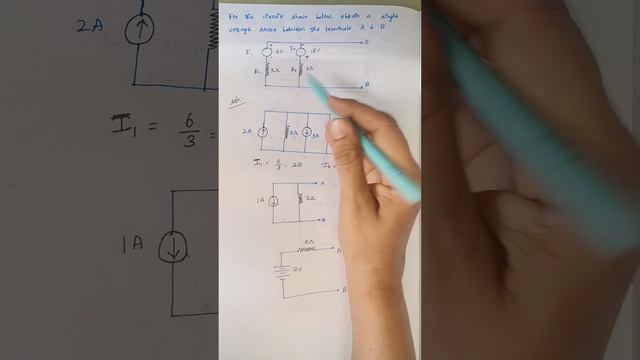 For the circuit shown below, obtain a single
voltage source between the terminals A & B
A
E₁ 6V E₂ 18V
R₁ 3Ω R₂ 6Ω
B
Soln:
2A 3Ω 3A
I₁ = 6/3 = 2A I₂ =
A
1A 2Ω
B
2Ω
A
2V
B
2A
I₁ = 6/3 =
1A